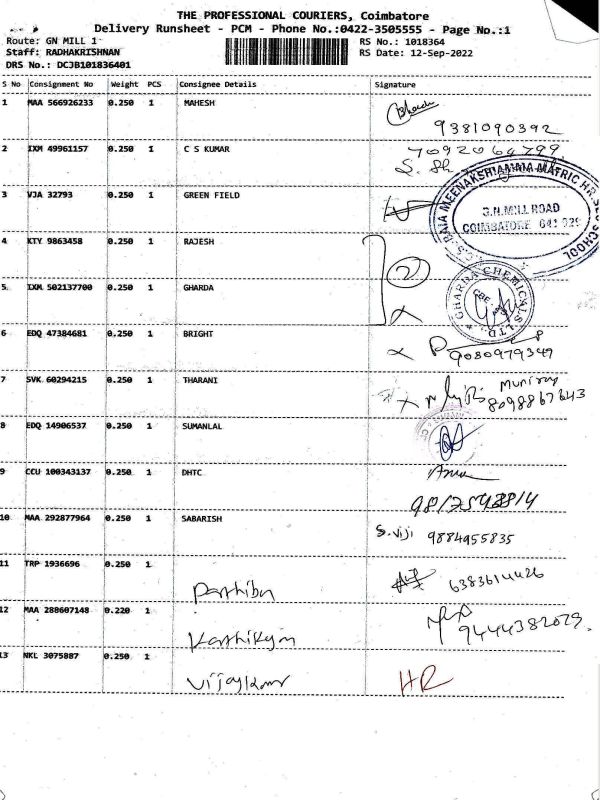 THE PROFESSIONAL COURIERS, Coimbatore
Delivery Runsheet - PCM - Phone No.:0422-3505555 - Page No.:1
Route: GN MILL 1
RS No.: 1018364
Staff: RADHAKRISHNAN
RS Date: 12-Sep-2022
DRS No.: DCJB101836401
S No Consignment No Weight PCS Consignee Details Signature
1 MAA 566926233 0.250 1 MAHESH
9381090392
2 IXM 49961157 0.250 1 C S KUMAR 7092064799
3 VJA 32793 0.250 1 GREEN FIELD
MEENAKSHIAMMA MATRIC HR. SEC SCHOOL
G.N.MILL ROAD
COIMBATORE 641 029
4 KTY 9863458 0.250 1 RAJESH
2
5 IXM 502137700 0.250 1 GHARDA
GHARDA CHEMICALS LTD.
CBE
6 EDQ 47384681 0.250 1 BRIGHT
9080979347
7 SVK 60294215 0.250 1 THARANI
8098867643
8 EDQ 14906537 0.250 1 SUMANLAL
9 CCU 100343137 0.250 1 DHTC
10 MAA 292877964 0.250 1 SABARISH S.Viji 9884955835
11 TRP 1936696 0.250 1
Parthibn
6383614426
12 MAA 288607148 0.220 1
Karthikyn
9444382029.
13 NKL 3075887 0.250 1
Vijaykumr HR